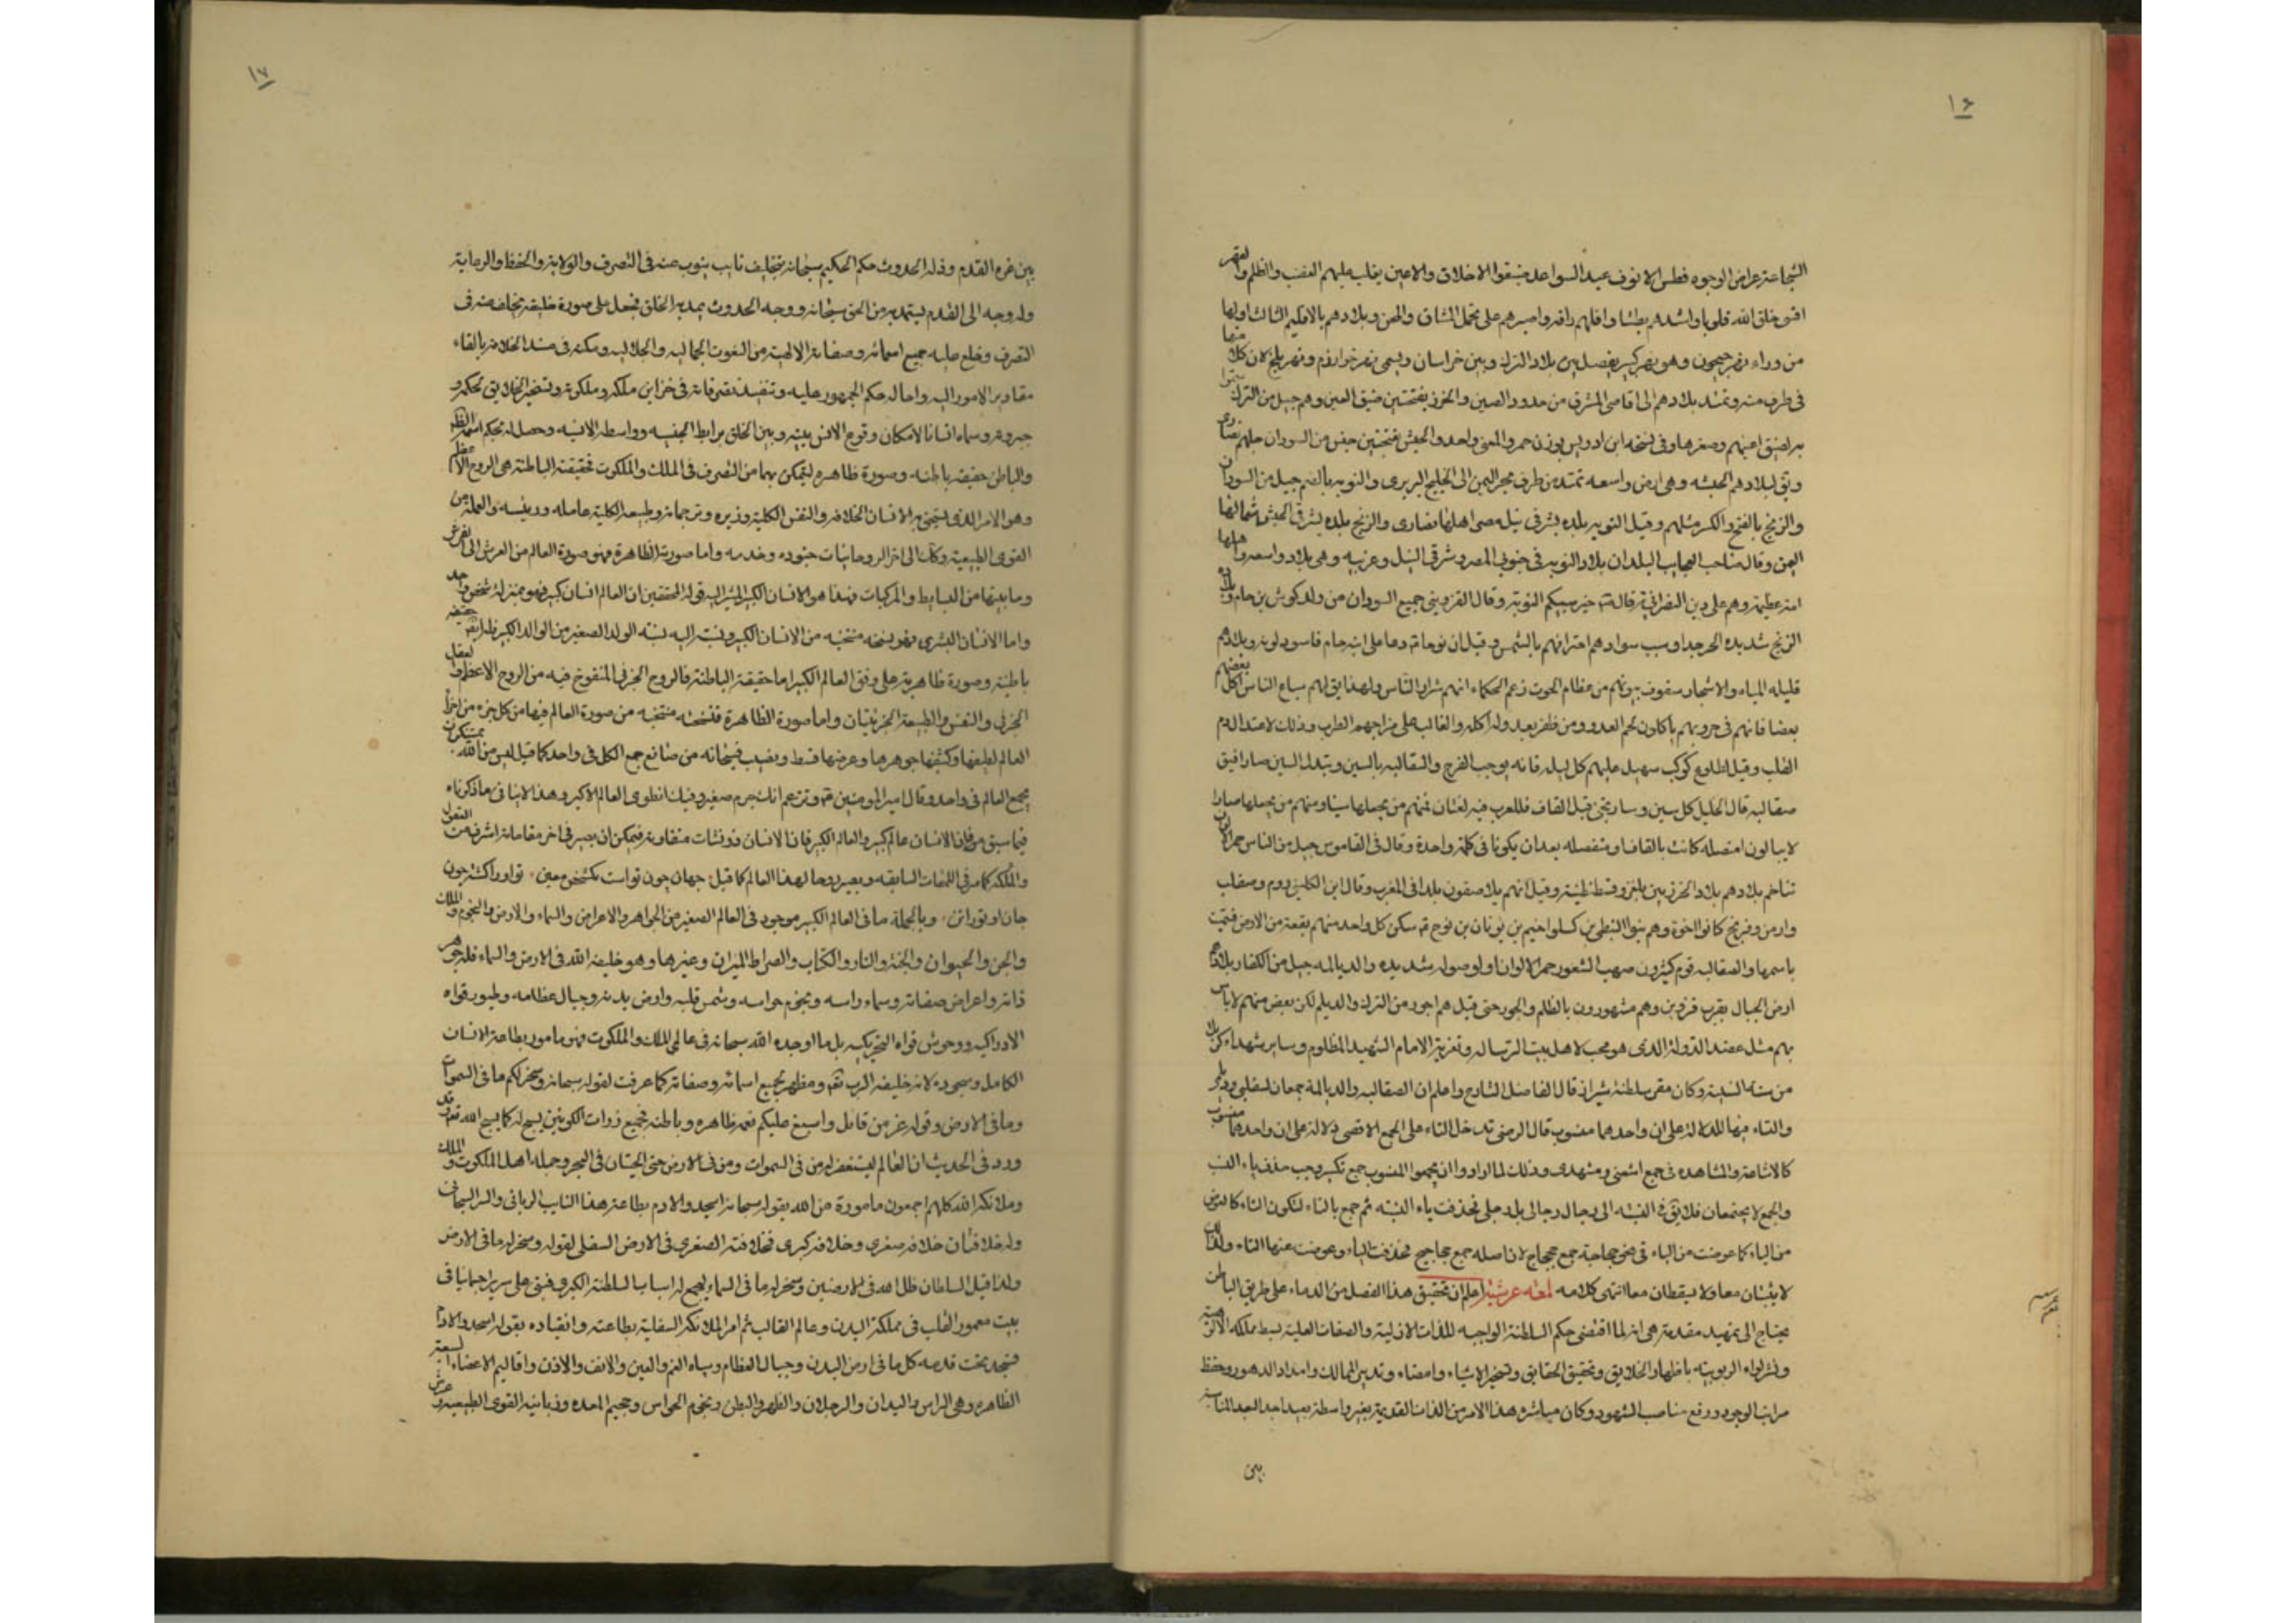 ١٦
الشجاعة عراض الوجوه فطس الانوف عبد السواعد ضيقوا الاخلاق والاعين يغلب عليهم الغضب والظلم والقهر
خلق الله قلوبا واشدهم بطشا واقلهم رافة واصبرهم على تحمل المشاق والمحن وبلادهم بالاقليم الثالث اولها
من وراء نهر جيحون وهو نهر كبير يفصل بين بلاد الترك وبين خراسان ويسمى نهر خوارزم ونهر بلخ لان كلا منها
في طرف منه وتمتد بلادهم الى اقاصى المشرق من حدود الصين والخزر بفتحتين ضيق العين وهم جيل من الترك سموا
به لضيق اعينهم وصغرها وفي نسخة ابن ادريس بوزن حمر والمعنى واحد والحبش بفتحتين جنس من السودان جلهم نصارى
ويق لبلادهم الحبشه وهي ارض واسعه تمتد من طرف بحر اليمن الى الخليج البربرى والنوبه بالضم جيل من السودان
والزنج بالفتح والكسر مثلهم وقيل النوبه بلده بشرقي نيله مصر اهلها نصارى والزنج بلده بشرقي الحبش شمالها
اليمن وقال صاحب العجايب البلدان بلاد النوبه في جنوبي المصر وشرقي النيل وغربيه وهي بلاد واسعه واهلها
امة عظيمة وهم على دين النصرانية قال خير سبيكم النوبة وقال القزويني جميع السودان من ولد كوش بن حام وبلاد
الزنج شديده الحر جدا وسبب سوادهم احتراقهم بالشمس وقيل ان نوحا دعا على ابنه حام فاسود لونه وبلادهم
قليله المياه والاشجار سقوف بيوتهم من عظام الحوت زعم الحكماء انهم شرار الناس ولهذا يق لهم سباع الناس اكل بعضهم
بعضا فانهم في حروبهم ياكلون لحم العدو ومن ظفر بعدو له اكله والغالب على مزاجهم الطرب وذلك لاعتدال دم
القلب وقيل لطلوع كوكب سهيل عليهم كل ليله فانه يوجب الفرح والسقالبه بالسين وتبدل السين صادا فيق
صقالبه قال الخليل كل سين وصاد تجئ قبل القاف فللعرب فيه لغتان فمنهم من يجعلها سينا ومنهم من يجعلها صادا
لا يبالون امتصله كانت بالقاف او منفصله بعد ان يكونا في كلمة واحدة وقال في القاموس جيل من الناس حمر الالوان
تتاخم بلادهم بلاد الخزر بين بلغر وقسطنطينية وقيل انهم بلاصفون بلدا في المغرب وقال ابن الكلبي روم وصقلب
وارمن وفرنج كانوا اخوة وهم بنوا النبطي بن كسلوخيم بن يونان بن نوح سكن كل واحد منهم بقعة من الارض فسميت
باسمها والصقالبه قوم كثيرون صهب الشعور حمر الالوان اولو صوله شديده والديالمه جيل من الكفار بلادهم
ارض الجبال بقرب قزوين وهم مشهورون بالظلم والجور حتى قيل هم اجور من الترك والديلم لكن بعض منهم لا باس
بهم مثل عضد الدولة الذى هو محب لاهل بيت الرسالة وتعزية الامام الشهيد المظلوم وساير شهداء كربلا
وكان مقر سلطنته شيراز قال الفاضل الشارح واعلم ان الصقالبه والديالمة جمعان لصقلبي وديلمي
والتاء فيها للدلالة على ان واحدهما منسوب قال الرضى تدخل التاء على الجمع الاقصى دلالة على ان واحدهما منسوب
كالاشاعثة والمشاهده في جمع اشعثى ومشهدى وذلك لما ارادوا ان يجمعوا المنسوب جمع تكسير وجب حذف ياء النسب
والجمع لا يجتمعان فلا يق في النسبه الى رجال رجالي بل رجلي فحذفت ياء النسبه ثم جمع بالتاء لتكون التاء كالعوض
من الياء كما عوضت من الياء في نحو جحاجحة جمع جحجاح لان اصله جمع جحاجيح فحذفت الياء وعوضت عنها التاء ولذلك
لا يثبتان معا ولا يسقطان معا انتهى كلامه لمعه عرشيه اعلم ان تحقيق هذا الفصل من الدعاء على طريق الباطن
يحتاج الى تمهيد مقدمة هي انه لما اقتضى حكم السلطنة الواجبه للذات الازلية والصفات العلية بسط مملكه الالوهية
ونشر لواء الربوبيته باظهار الخلايق وتحقيق الحقايق وتسخير الاشياء وامضاء وتدبير الممالك وامداد الدهور وحفظ
مراتب الوجود ورفع مناصب الشهود وكان مباشرة هذا الامر من الذات القديمة بغير واسطة بعيدا جدا لبعد المناسبة
بين
١٧
بين عزة القدم وذلة الحدوث حكم الحكيم سبحانه بتخليف نايب ينوب عنه في التصرف والولاية والحفظ والرعاية
وله وجه الى القدم يستمد به من الحق سبحانه ووجه الى الحدوث يمد به الخلق فجعل على صورة خليفة يخلف عنه في
التصرف وخلع عليه جميع اسمائه وصفاته الالهية من النعوت الجماليه والجلاليه ومكنه في مسند الخلافه بالقاء
مقادير الامور اليه واحال حكم الجمهور عليه وتنفيذ تصرفاته في خزاين ملكه وملكوته وتسخير الخلايق لحكمه و
جبروته وسماه انسانا لامكان وقوع الانس بينه وبين الخلق برابط الجنسيه وواسطة الانسيه وحصل له بحكم اسمه الظاهر
والباطن حقيقه باطنه وصورة ظاهره ليتمكن بهما من التصرف في الملك والملكوت فحقيقته الباطنة هي الروح الاعظم
وهو الامر الذى يستحق به الانسان الخلافه والنفس الكلية وزيره وترجمانه والطبيعه الكلية عامله ورئيسه والعملة من
القوى الطبيعيه وكذا الى اخر الروحانيات جنوده وخدمه واما صورته الظاهرة فهو صورة العالم من العرش الى الفرش
وما بينهما من البسايط والمركبات فهذا هو الانسان الكبير المشار اليه قول المحققين ان العالم انسان كبير فهو بمنزلة شخص واحد
واما الانسان البشري فهو نسخه منتخبه من الانسان الكبير ونسبته اليه نسبة الولد الصغير من الوالد الكبير فله ايضا حقيقه
باطنية وصورة ظاهريه على وفق العالم الكبير اما حقيقته الباطنة فالروح الجزئي المنفوخ فيه من الروح الاعظم والعقل
الجزئي والنفس والطبيعة الجزئيتان واما صورة الظاهرة فنسخه منتخبه من صورة العالم فيها من كل جزء من اجزاء
العالم لطيفها وكثيفها جوهرها وعرضها قسط ونصيب فسبحانه من صانع جمع الكل في واحد كما قيل ليس من الله بمستنكر ان
يجمع العالم في واحد وقال امير المومنين وتزعم انك جرم صغير وفيك انطوى العالم الاكبر وهذا لا ينافي ما ذكرناه
فيما سبق من فان الانسان عالم كبير والعالم الكبير فان الانسان ذو نشات متفاوتة فيمكن ان يصير في اخر مقاماته اشرف من
والملك كما مر في اللمعات السابقه ويصير روحا لهذا العالم كما قيل جهان چون تواست يكشخص معين تو او را كشته چون
جان او تو را تن وبالجملة ما في العالم الكبير موجود في العالم الصغير من الجواهر والاعراض والسماء والارض والنجوم والملك
والجن والحيوان والجنة والنار والكتاب والصراط الميزان وغيرها وهو خليفة الله في الارض والسماء فله جوهر
ذاته واعراض صفاته وسماء راسه ونجوم حواسه وشمس قلبه وارض بدنه وجبال عظامه وطيور قواه
الادراكيه ووحوش قواه التحريكيه بل ما اوجده الله سبحانه في عالمى الملك والملكوت فهو مامور بطاعة الانسان
الكامل وسجوده لانه خليفة الرب ومظهر لجميع اسمائه وصفاته كما عرفت لقوله سبحانه وسخر لكم ما في السموات
وما في الارض وقوله عز من قائل واسبغ عليكم نعمه ظاهره وباطنه فجميع ذوات الكونين يسبح له كما يسبح الله تعالى وقد
ورد في الحديث ان العالم ليستغفر له من في السموات ومن في الارض حتى الحيتان في البحر وجمله اهل الملكوت والملك
وملائكة الله كلهم اجمعون مامورة من الله بقوله سبحانه اسجدوا لادم بطاعة هذا النايب الرباني والسر السبحاني
وله خلافتان خلافه صغرى وخلافه كبرى فخلافته الصغرى في الارض السفلى لقوله وسخر له ما في الارض
ولذا قيل السلطان ظل الله في الارضين وسخر له ما في السماء ليجمع له اسباب السلطنة الكبرى فبنى على سرير اجماليا في
بيت معمور القلب في مملكة البدن وعالم القالب ثم امر الملائكة السفلية بطاعته وانقياده بقوله اسجدوا لادم
فسجد تحت قدمه كل ما في ارض البدن وجبال العظام ومياه الفم والعين والانف والاذن واقاليم الاعضاء السبعة
الظاهره وهي الراس واليدان والرجلان والظهر والبطن ونجوم الحواس وجحيم المعده وزبانيه القوى الطبيعيه وعرش